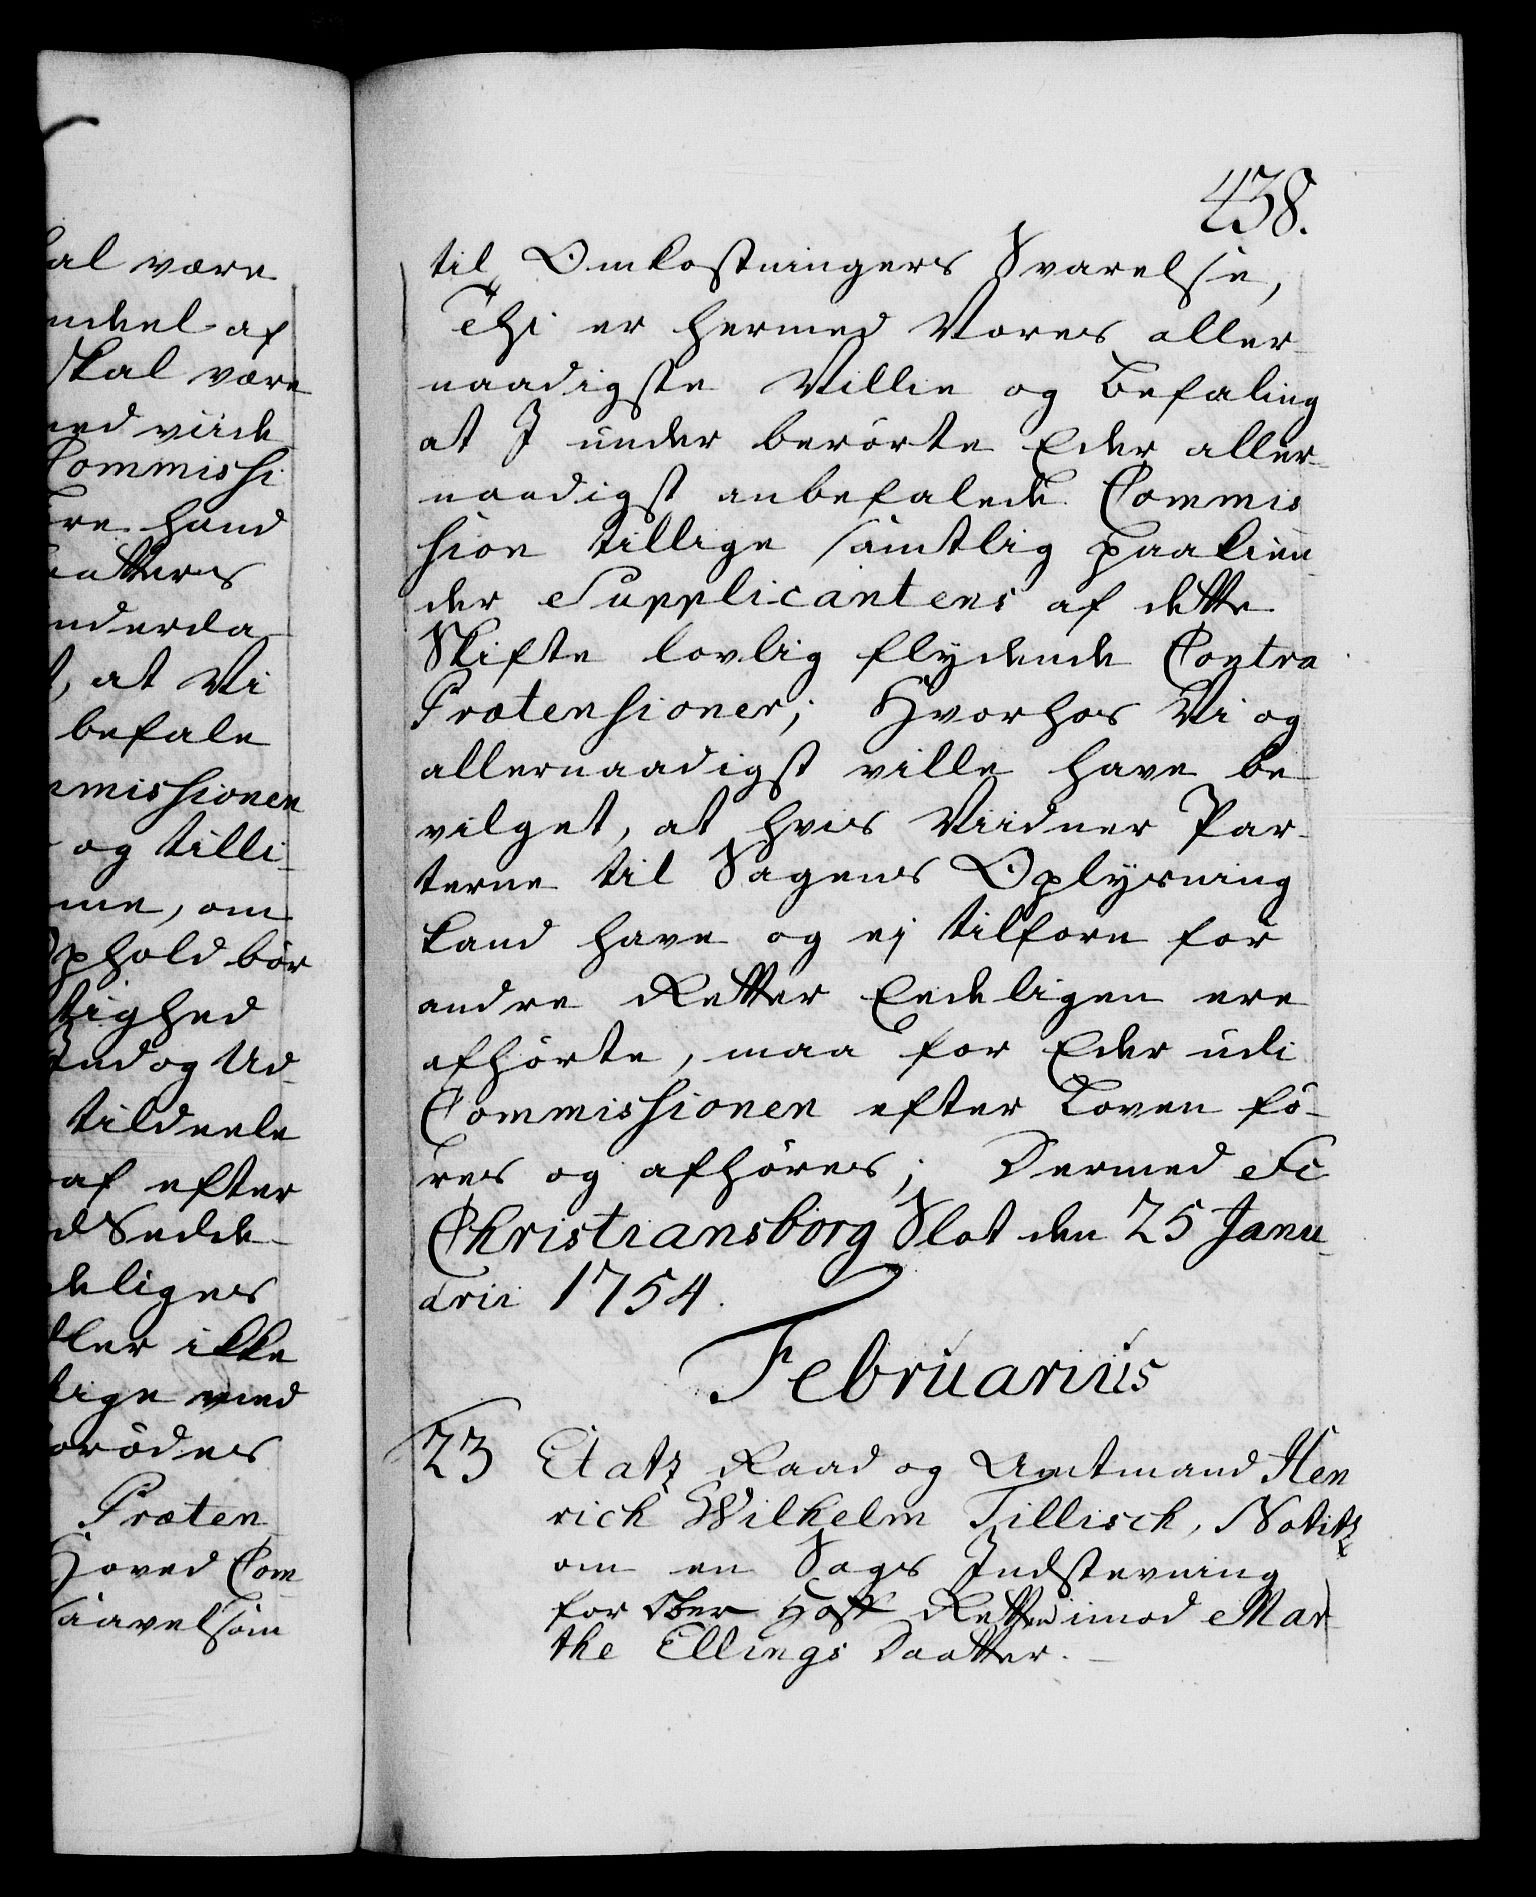 al være
ndeel af
skal være
ned viide
Commissi
re haand
atters
nderda
t, at Vi
befale
mmissionen
og tilli-
me, om
Ophold bör
tighed
Ind og Ud-
tildeele
af efter
d Sedde-
deliges
ller ikke
lige med
orödes
Præten
Hoved Com
saavelsom
438.
til Omkostningers Svarelse,
Thi er hermed Vores aller-
naadigste Villie og Befaling
at I under berörte Eder aller-
naadigst anbefalede Commis
sion tillige samtlig paakien-
der Supplicantens af dette
Skifte lovlig flydende Contra
Prætensioner; Hvorhos Vi og
allernaadigst ville have be-
vilget, at hvis Viidner Par-
terne til Sagens Oplysning
kand have og ej tilforn for
andre Retter Eedeligen ere
afhörte, maa for Eder udi
Commissionen efter Loven fö-
res og afhöres; Dermed Sc
Christiansborg Slot den 25 Janu-
arii 1754.
Februarius
23 Etatz Raad og Amtmand Hen
rich Wilhelm Tillisch, Notitz
om en Sags Indstevning
for Ober Hoff Retten imod Mar-
the Ellings Daatter.